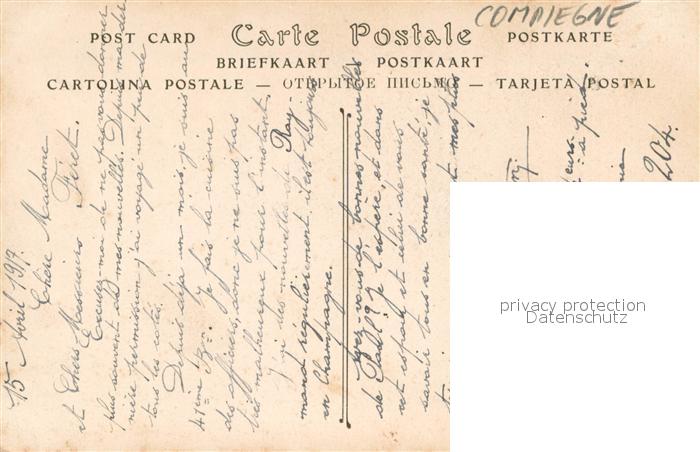 COMPIEGNE
POST CARD Carte Postale POSTKARTE
BRIEFKAART POSTKAART
CARTOLINA POSTALE — ОТКРЫТОЕ ПИСЬМО — TARJETA POSTAL
15 Avril 1917.
Chère Madame
et Chers Messieurs Féret.
Excusez-moi de ne pas vous donner
plus souvent de mes nouvelles. Depuis ma der
nière permission, j'ai voyagé un peu de
tous les côtés.
Depuis déjà un mois, je suis au
41ème. Je fais la cuisine
des officiers, donc je ne suis pas
très malheureux pour l'instant.
J'ai des nouvelles de Ray-
mond régulièrement, il est toujours
en Champagne.
Avez-vous de bonnes nouvelles
de Paul? Je l'espère, et dans
cet espoir et celui de vous
savoir tous en bonne santé, je
mes plus
204.
privacy protection
Datenschutz